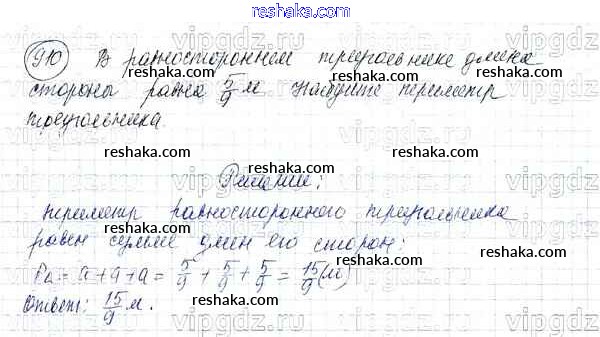 reshaka.com
910 В равностороннем треугольнике длина
стороны равна 5/9 м. Найдите периметр
треугольника.
reshaka.com
reshaka.com
reshaka.com
reshaka.com
Решение:
reshaka.com
Периметр равностороннего треугольника
reshaka.com
равен сумме длин его сторон:
reshaka.com
P△ = a + a + a = 5/9 + 5/9 + 5/9 = 15/9 (м)
Ответ: 15/9 м.
reshaka.com
reshaka.com
vipgdz.ru